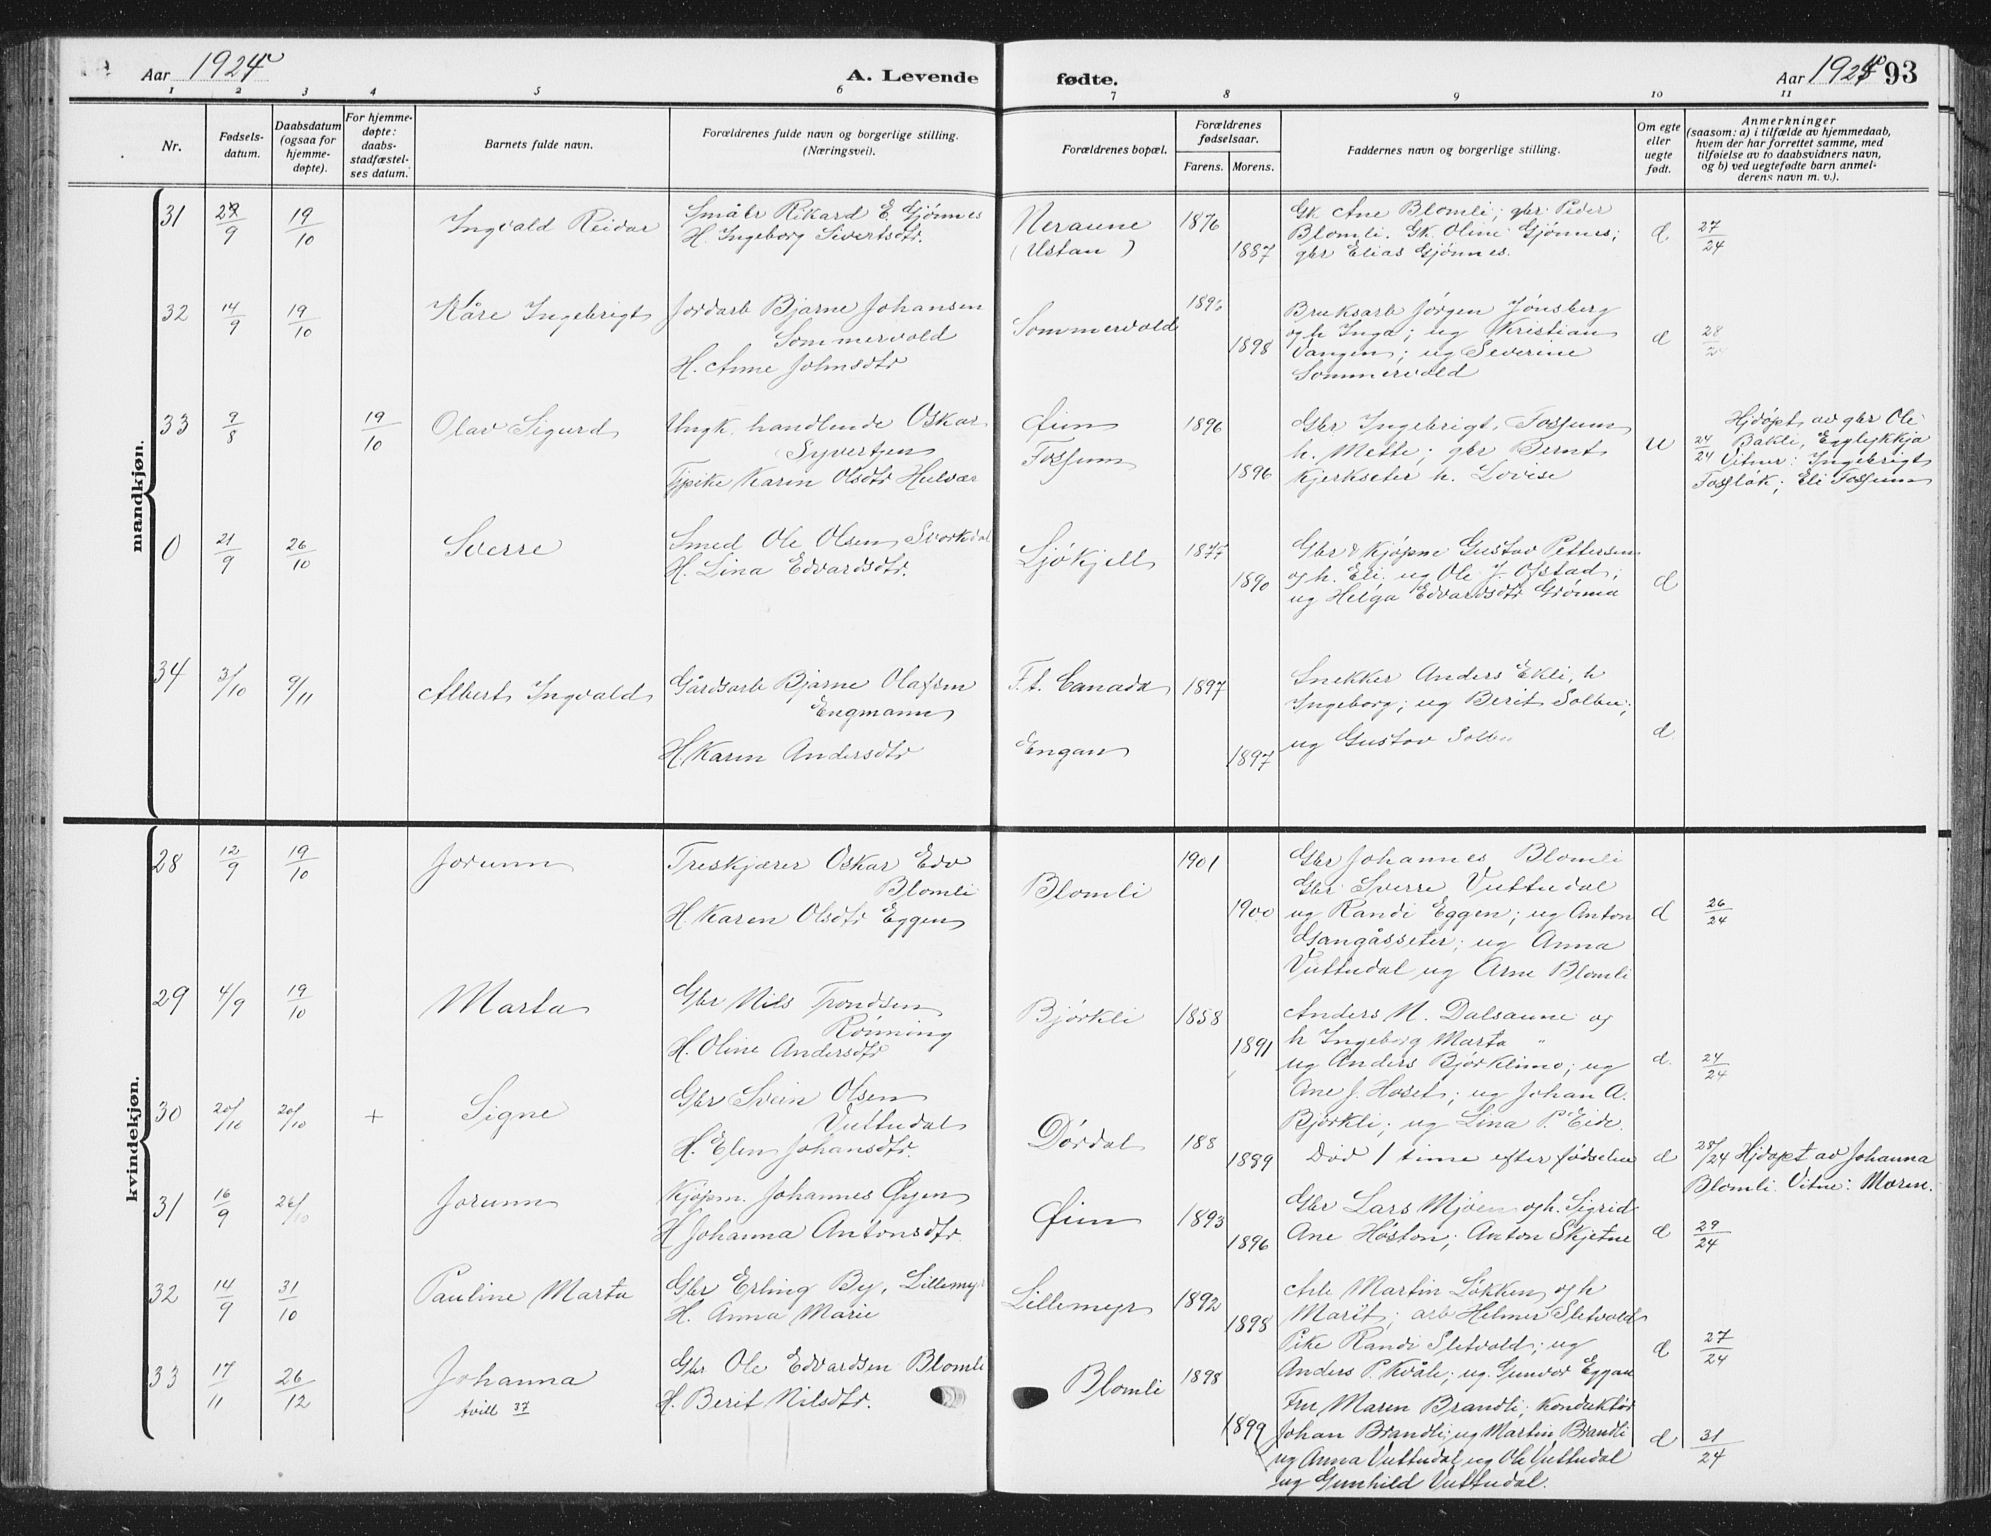 Aar 1924
A. Levende fødte.
Aar 1924 93
1 2 3 4 5 6 7 8 9 10 11
Nr.
Fødsels-
datum.
Daabsdatum
(ogsaa for
hjemme-
døpte).
For hjemme-
døpte:
daabs-
stadfæstel-
ses datum.
Barnets fulde navn.
Forældrenes fulde navn og borgerlige stilling.
(Næringsvei).
Forældrenes bopæl.
Forældrenes
fødselsaar.
Farens. Morens.
Faddernes navn og borgerlige stilling.
Om egte
eller
uegte
født.
Anmerkninger
(saasom: a) i tilfælde av hjemmedaab,
hvem der har forrettet samme, med
tilføielse av to daabsvidners navn,
og b) ved uegtefødte barn anmel-
derens navn m. v.).
mandkjøn.
31
9
19/10
Ingvald Reidar
Småbr Rikard E. Gjønnes
H. Ingeborg Sivertsdtr.
Neraune
(Ustan)
1876
1887
Gk. Ane Blomli; gbr. Peder
Blomli. Gk. Oline Gjønnes;
gbr Elias Gjønnes.
d
27/24
32
14/9
19/10
Kåre Ingebrigt
Jordarb Bjarne Johansen
Sommervold
H. Anne Johnsdtr
Sommervold
1898
Bruksarb Jørgen Jønsberg
og h Inga; ug Kristian
Vangen; ug Severine
Sommervold
d
28/24
33
9/8
19/10
Olav Sigurd
Ungk. handlende Oskar
Syvertsen
Tjpike Karen Olsdtr Hulvær
Øien
Fossum
1896
1896
Gbr Ingebrigt Fossum
h. Mette; gbr Bernt
Kjerkseter h. Lovise
u
24/24
Hjdøpt av gbr Ole
Bakli, Eggløkkja
Vitner: Ingebrigt
Fossløk; Eli Fossum
0
21/9
26/10
Sverre
Smed Ole Olsen Svorkdal
H. Lina Edvardsdtr.
Ljøkjell
1877
1890
Gbr & kjøpm Gustav Pettersen
og h. Eli. ug Ole J. Ofstad;
ug Helga Edvardsdtr Grønna
d
34
3/10
9/11
Albert Ingvald
Gårdsarb Bjarne Olafsen
Engmann
H. Karen Andersdtr
F.t. Canada
Engan
1897
1897
Snekker Anders Ekli, h
Ingeborg; ug Berit Solbu;
ug Gustav Solbu
d.
kvindekjøn.
28
12/9
19/10
Jorunn
Treskjærer Oskar Edv
Blomli
H. Karen Olsdtr Eggen
Blomli
1901
1900
Gbr Johannes Blomli
Gbr Sverre Vuttudal
ug Randi Eggen; ug Anton
Gangåsseter; ug Anna
Vuttudal ug Arne Blomli
d
26/24
29
4/9
19/10
Marta
Gbr Nils Trondsen
Rønning
H. Oline Andersdtr
Bjørkli
1858
1891
Anders N. Dalsaune og
h Ingeborg Marta "
ug Anders Bjørklimo; ug
Ane J. Hoset; ug Johan A.
Bjørkli; ug Lina P. Eide.
d.
24/24
30
20/10
20/10
+
Signe
Gbr Svein Olsen
Vuttudal
H. Elen Johansdtr.
Dørdal
188
1889
Død 1 time efter fødselen
d
28/24 Hjdøpt av Johanna
Blomli. Vitne: Moren.
31
16/9
26/10
Jorunn
Kjøpm. Johannes Øyen
H Johanna Antonsdtr.
Øien
1893
1896
Gbr Lars Mjøen og h. Sigrid
Ane Høston; Anton Skjetne
d
29/24
32
14/9
31/10
Pauline Marta
Gbr Erling By, Lillemyr
H. Anna Marie
Lillemyr
1892
1898
Arb Martin Løkken og h
Marit; arb Helmer Sletvold
Pike Randi Sletvold; ug
Anders P. Kvåle; ug. Gunvor Eggan
d
27/24
33
17/11
26/12
Johanna
tvill 37
Gbr Ole Edvardsen Blomli
H. Berit Nilsdtr.
Blomli
1898
1899
Fru Maren Brandli; konduktør
Johan Brandli; ug Martin Brandli
ug Anna Vuttudal ug Ole Vuttudal
ug Gunhild Vuttudal.
d
31/24